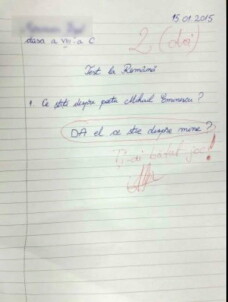 15.01.2015
clasa a VII-a C
2 (doi)
Test la Română
1. Ce știți despre poetul Mihail Eminescu?
DA el ce știe despre mine?